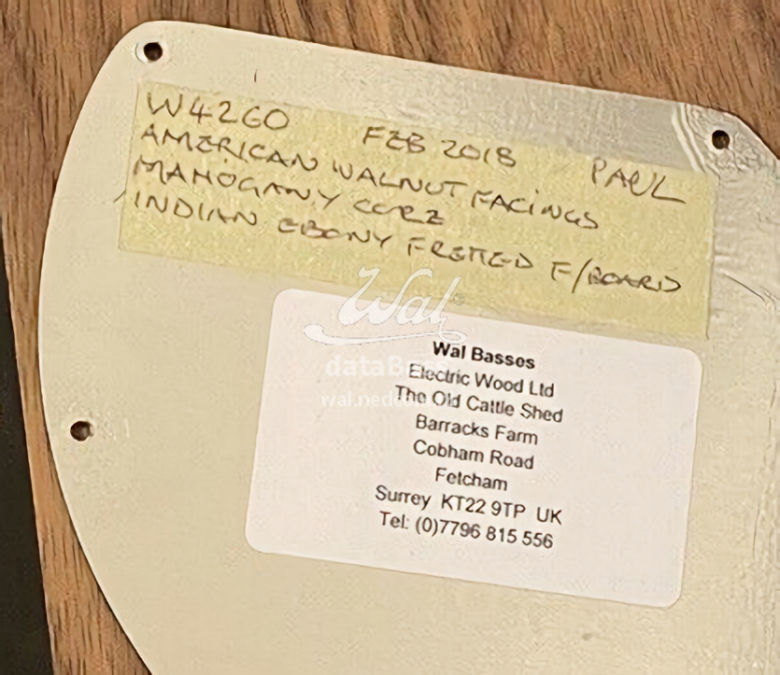 W4260 FEB 2018 PAUL
AMERICAN WALNUT FACINGS
MAHOGANY CORE
INDIAN EBONY FRETTED F/BOARD
Wal
dataBass
Wal Basses
Electric Wood Ltd
The Old Cattle Shed
Barracks Farm
Cobham Road
Fetcham
Surrey KT22 9TP UK
Tel: (0)7796 815 556